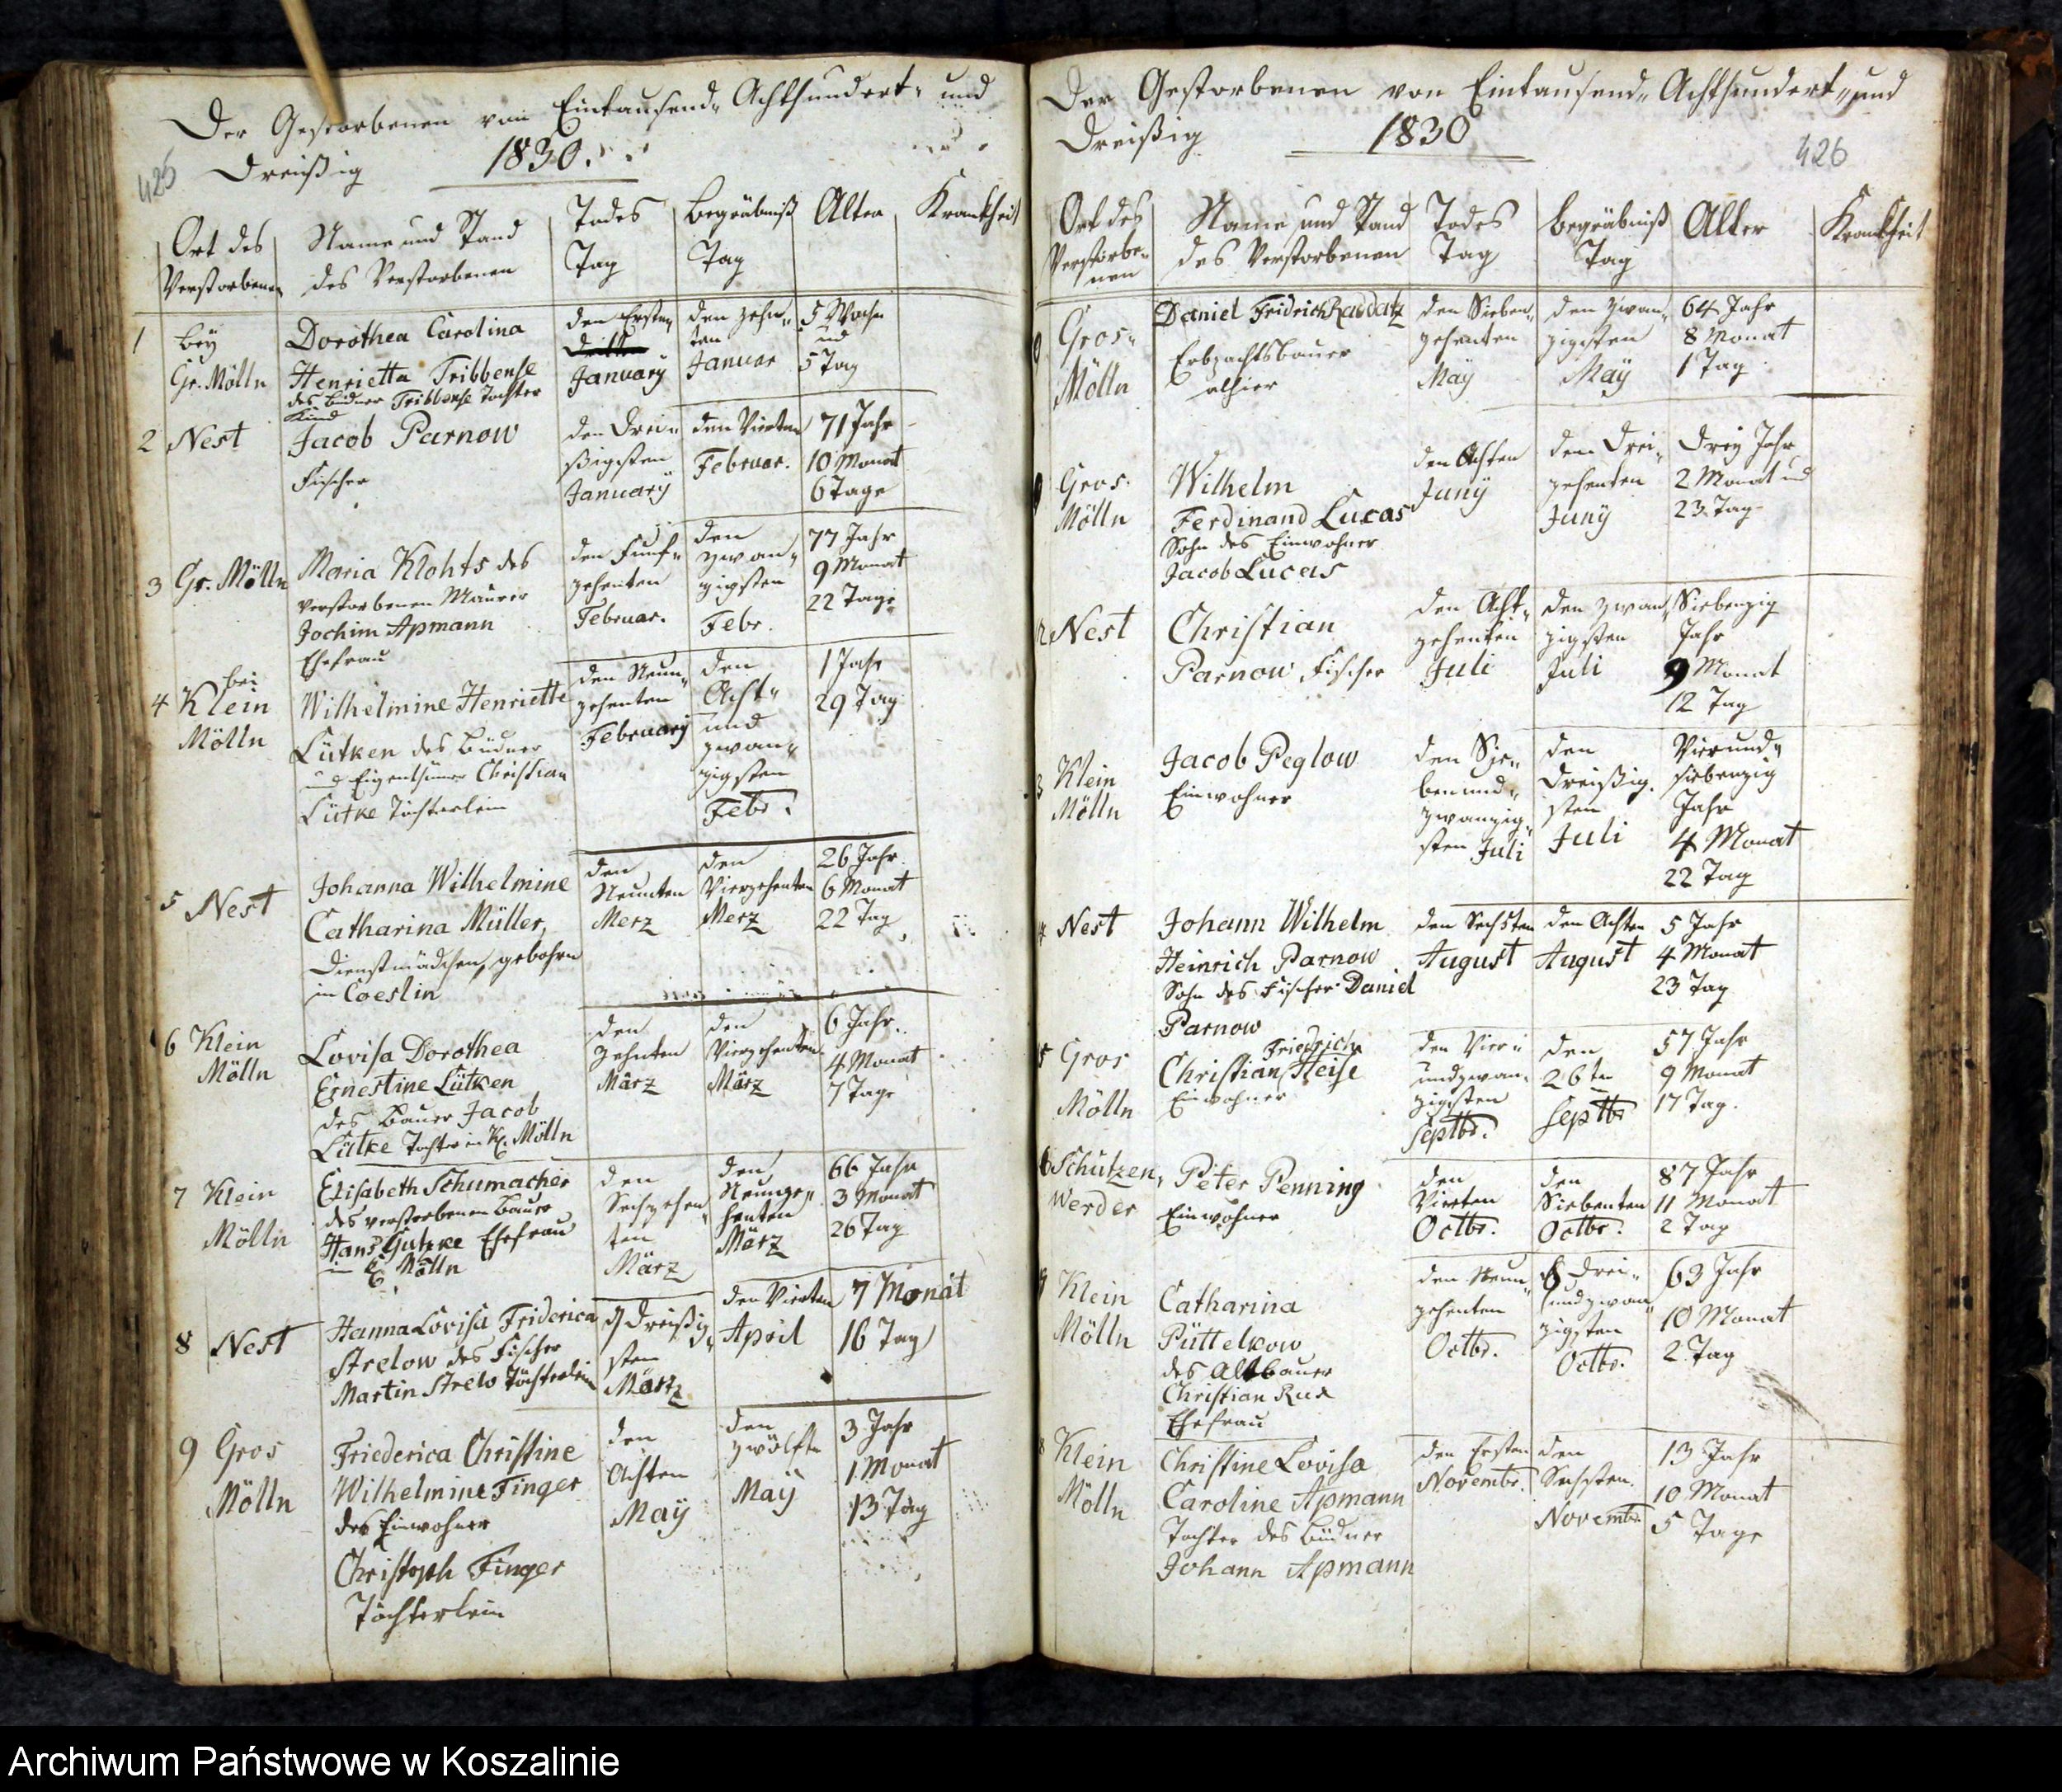 Der Gestorbenen von Eintausend„ Achthundert„ und
Dreissig 1830.
425
Ort des Verstorbenen
Name und Stand des Verstorbenen
Todes Tag
Begräbniß Tag
Alter
Krankheit
1
bey
Gr. Mölln
Dorothea Carolina
Henrietta Tribbense
des Büdner Tribbense Tochter
Kind
den Ersten
January
den zehn„
ten
Januar
5 Woche
und
5 Tag
2 Nest
Jacob Parnow
Fischer
den Drei„
ßigsten
January
den Vierten
Februar.
71 Jahr
10 Monat
6 Tage
3 Gr. Mölln
Maria Klohts des
verstorbenen Maurer
Jochim Apmann
Ehefrau
den Funf„
zehenten
Februar.
den
zwan„
zigsten
Febr.
77 Jahr
9 Monat
22 Tage
4 bei
Klein
Mölln
Wilhelmine Henriette
Lütken des Büdner
und Eigenthümer Christian
Lütke Töchterlein
den Neun„
zehenten
February
den
Acht„
und
zwan„
zigsten
Febr.
1 Jahr
29 Tag
5 Nest
Johanna Wilhelmine
Catharina Müller,
Dienstmädchen, gebohren
in Coeslin
den
Neunten
Merz
den
Vierzehenten
Merz
26 Jahr
6 Monat
22 Tag
6 Klein
Mölln
Lovisa Dorothea
Ernestine Lütken
des Bauer Jacob
Lütke Tochter in Kl. Mölln
den
Zehnten
März
den
Vierzehenten
März
6 Jahr.
4 Monat
7 Tage
7 Klein
Mölln
Elisabeth Schumacher
des verstorbenen Bauer
Hans Gutzke Ehefrau
in Kl. Mölln
den
Sechzehen„
ten
März
den
Neunze„
henten
März
66 Jahr
3 Monat
26 Tag
8 Nest
Hanna Lovisa Friderica
Strelow des Fischer
Martin Strelo Töchterlein
d Dreißig„
sten
März
den Vierten
April
7 Monat
16 Tag
9 Gros
Mölln
Friederica Christine
Wilhelmine Finger
des Einwohner
Christoph Finger
Töchterlein
den
Achten
May
den
zwölften
May
3 Jahr
1 Monat
13 Tag
Der Gestorbenen von Eintausend„ Achthundert„ und
Dreißig 1830
426
Ort des Verstorbe„
nen
Name und Stand des Verstorbenen
Todes Tag
Begräbniß Tag
Alter
Krankheit
Gros„
Mölln
Daniel Fridrich Raddatz
Erbpachtsbauer
alhier
den Sieben„
zehenten
May
den zwan„
zigsten
May
64 Jahr
8 Monat
1 Tag
Gros
Mölln
Wilhelm
Ferdinand Lucas
Sohn des Einwohner
Jacob Lucas
den Achten
Juny
den Drei„
zehenten
Juny
Drey Jahr
2 Monat und
23 Tag
2 Nest
Christian
Parnow Fischer
den Acht„
zehenten
Juli
den zwan„
zigsten
Juli
Siebenzig
Jahr
9 Monat
12 Tag
3 Klein
Mölln
Jacob Peglow
Einwohner
den Sie„
benund„
zwanzig„
sten Juli
den
Dreißig„
sten
Juli
Vierund„
siebenzig
Jahr
4 Monat
22 Tag
4 Nest
Johann Wilhelm
Heinrich Parnow
Sohn des Fischer Daniel
Parnow
den Sechsten
August
den Achten
August
5 Jahr
4 Monat
23 Tag
5 Gros
Mölln
Friedrich
Christian Heise
Einwohner
den Vier„
undzwan„
zigsten
Septbr.
den
26ten
Septbr
57 Jahr
9 Monat
17 Tag.
6 Schützen„
werder
Peter Penning
Einwohner
den
Vierten
Octbr.
den
Siebenten
Octbr.
87 Jahr
11 Monat
2 Tag
Klein
Mölln
Catharina
Püttelkow
des Altbauer
Christian Rux
Ehefrau
den Neun„
zehenten
Octbr.
d Drei„
undzwan„
zigsten
Octbr.
63 Jahr
10 Monat
2 Tag
8 Klein
Mölln
Christine Lovisa
Caroline Apmann
Tochter des Büdner
Johann Apmann
den Ersten
Novembr.
den
Sechsten
Novembr.
13 Jahr
10 Monat
5 Tage
Archiwum Państwowe w Koszalinie